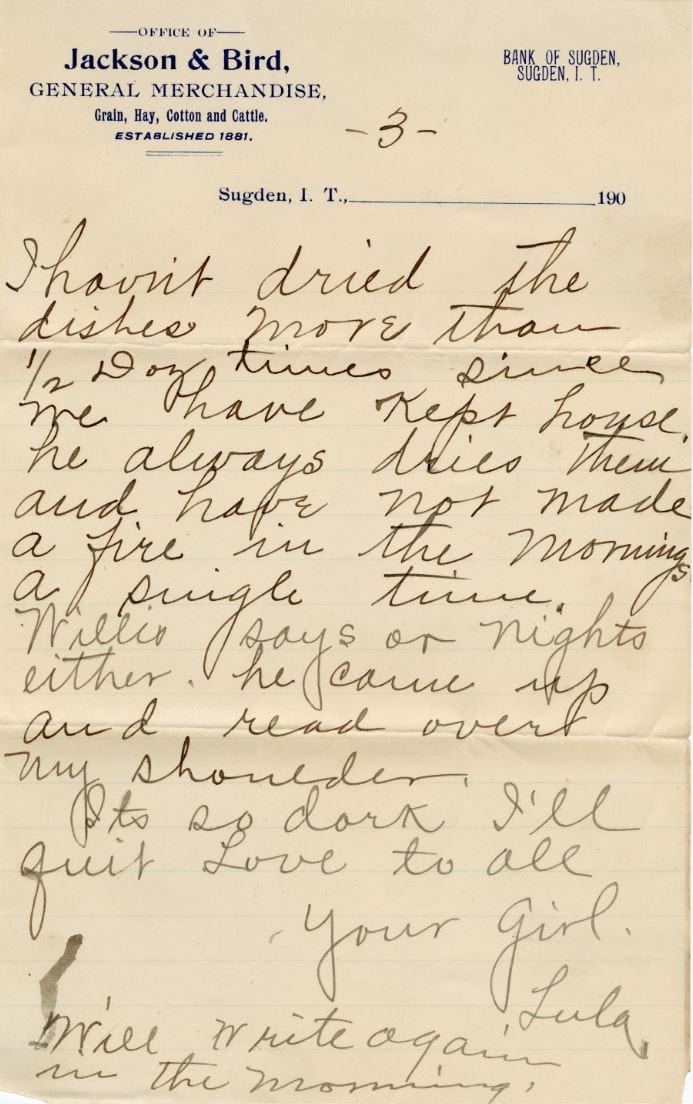 OFFICE OF
Jackson & Bird,
GENERAL MERCHANDISE,
Grain, Hay, Cotton and Cattle.
ESTABLISHED 1881.
BANK OF SUGDEN,
SUGDEN, I. T.
-3-
Sugden, I. T., 190
I havnt dried the
dishes more than
1/2 Doz times since
we have kept house.
he always dries them
and have not made
a fire in the mornings
a single time.
Willis says or nights
either. he came up
and read over
my shoulder.
Its so dark I'll
quit Love to all
Your Girl.
Lula,
Will write again
in the morning.